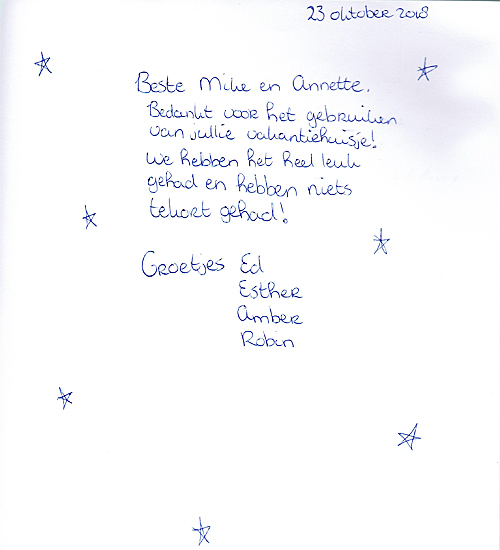 23 oktober 2018
Beste Mike en Annette.
Bedankt voor het gebruiken
van jullie vakantiehuisje!
We hebben het heel leuk
gehad en hebben niets
tekort gehad!
Groetjes Ed
Esther
Amber
Robin